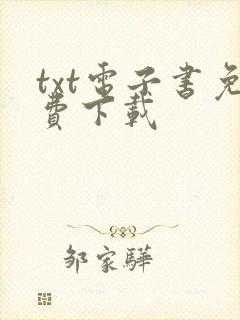 txt電子書免
費下載
鄒家驊